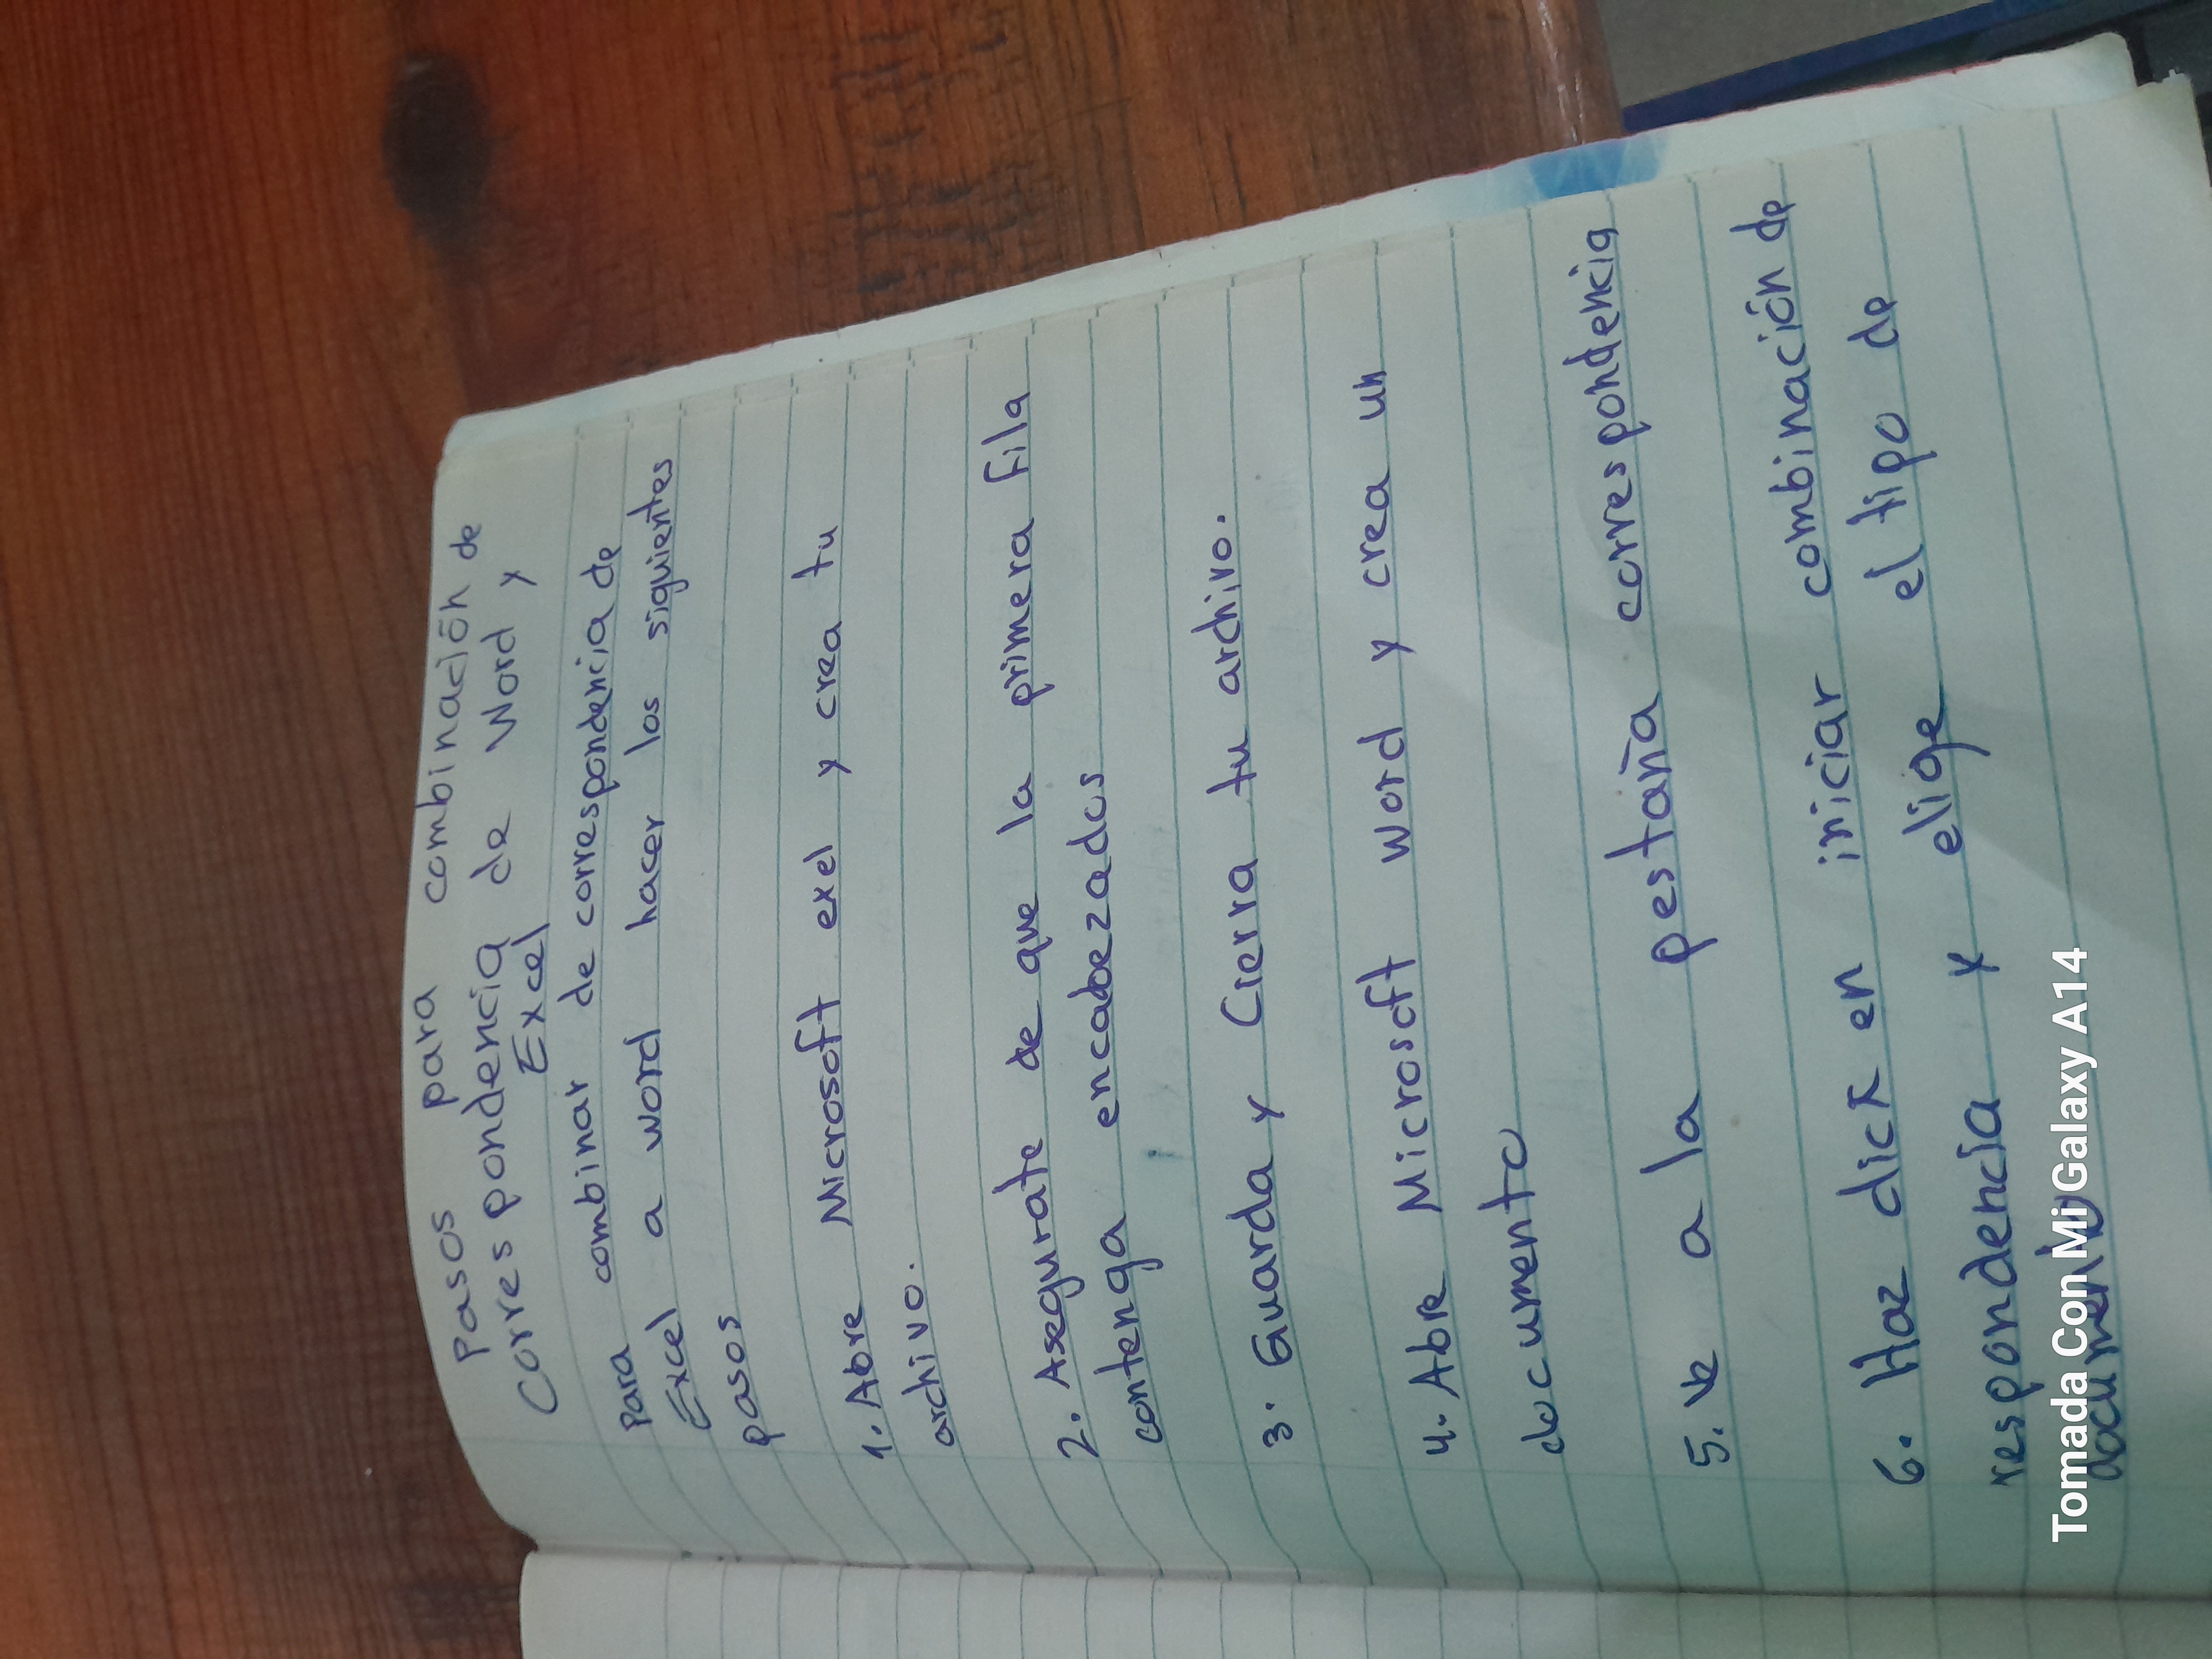 Pasos para combinación de
Correspondencia de Word y
Excel
Para combinar de correspondencia de
Excel a word hacer los siguientes
pasos
1. Abre Microsoft exel y crea tu
archivo.
2. Asegurate de que la primera fila
contenga encabezados
3. Guarda y Cierra tu archivo.
4. Abre Microsoft word y crea un
documento
5. Ve a la pestaña correspondencia
6. Haz click en iniciar combinación de
respondencia y elige el tipo de
documento
Tomada Con Mi Galaxy A14